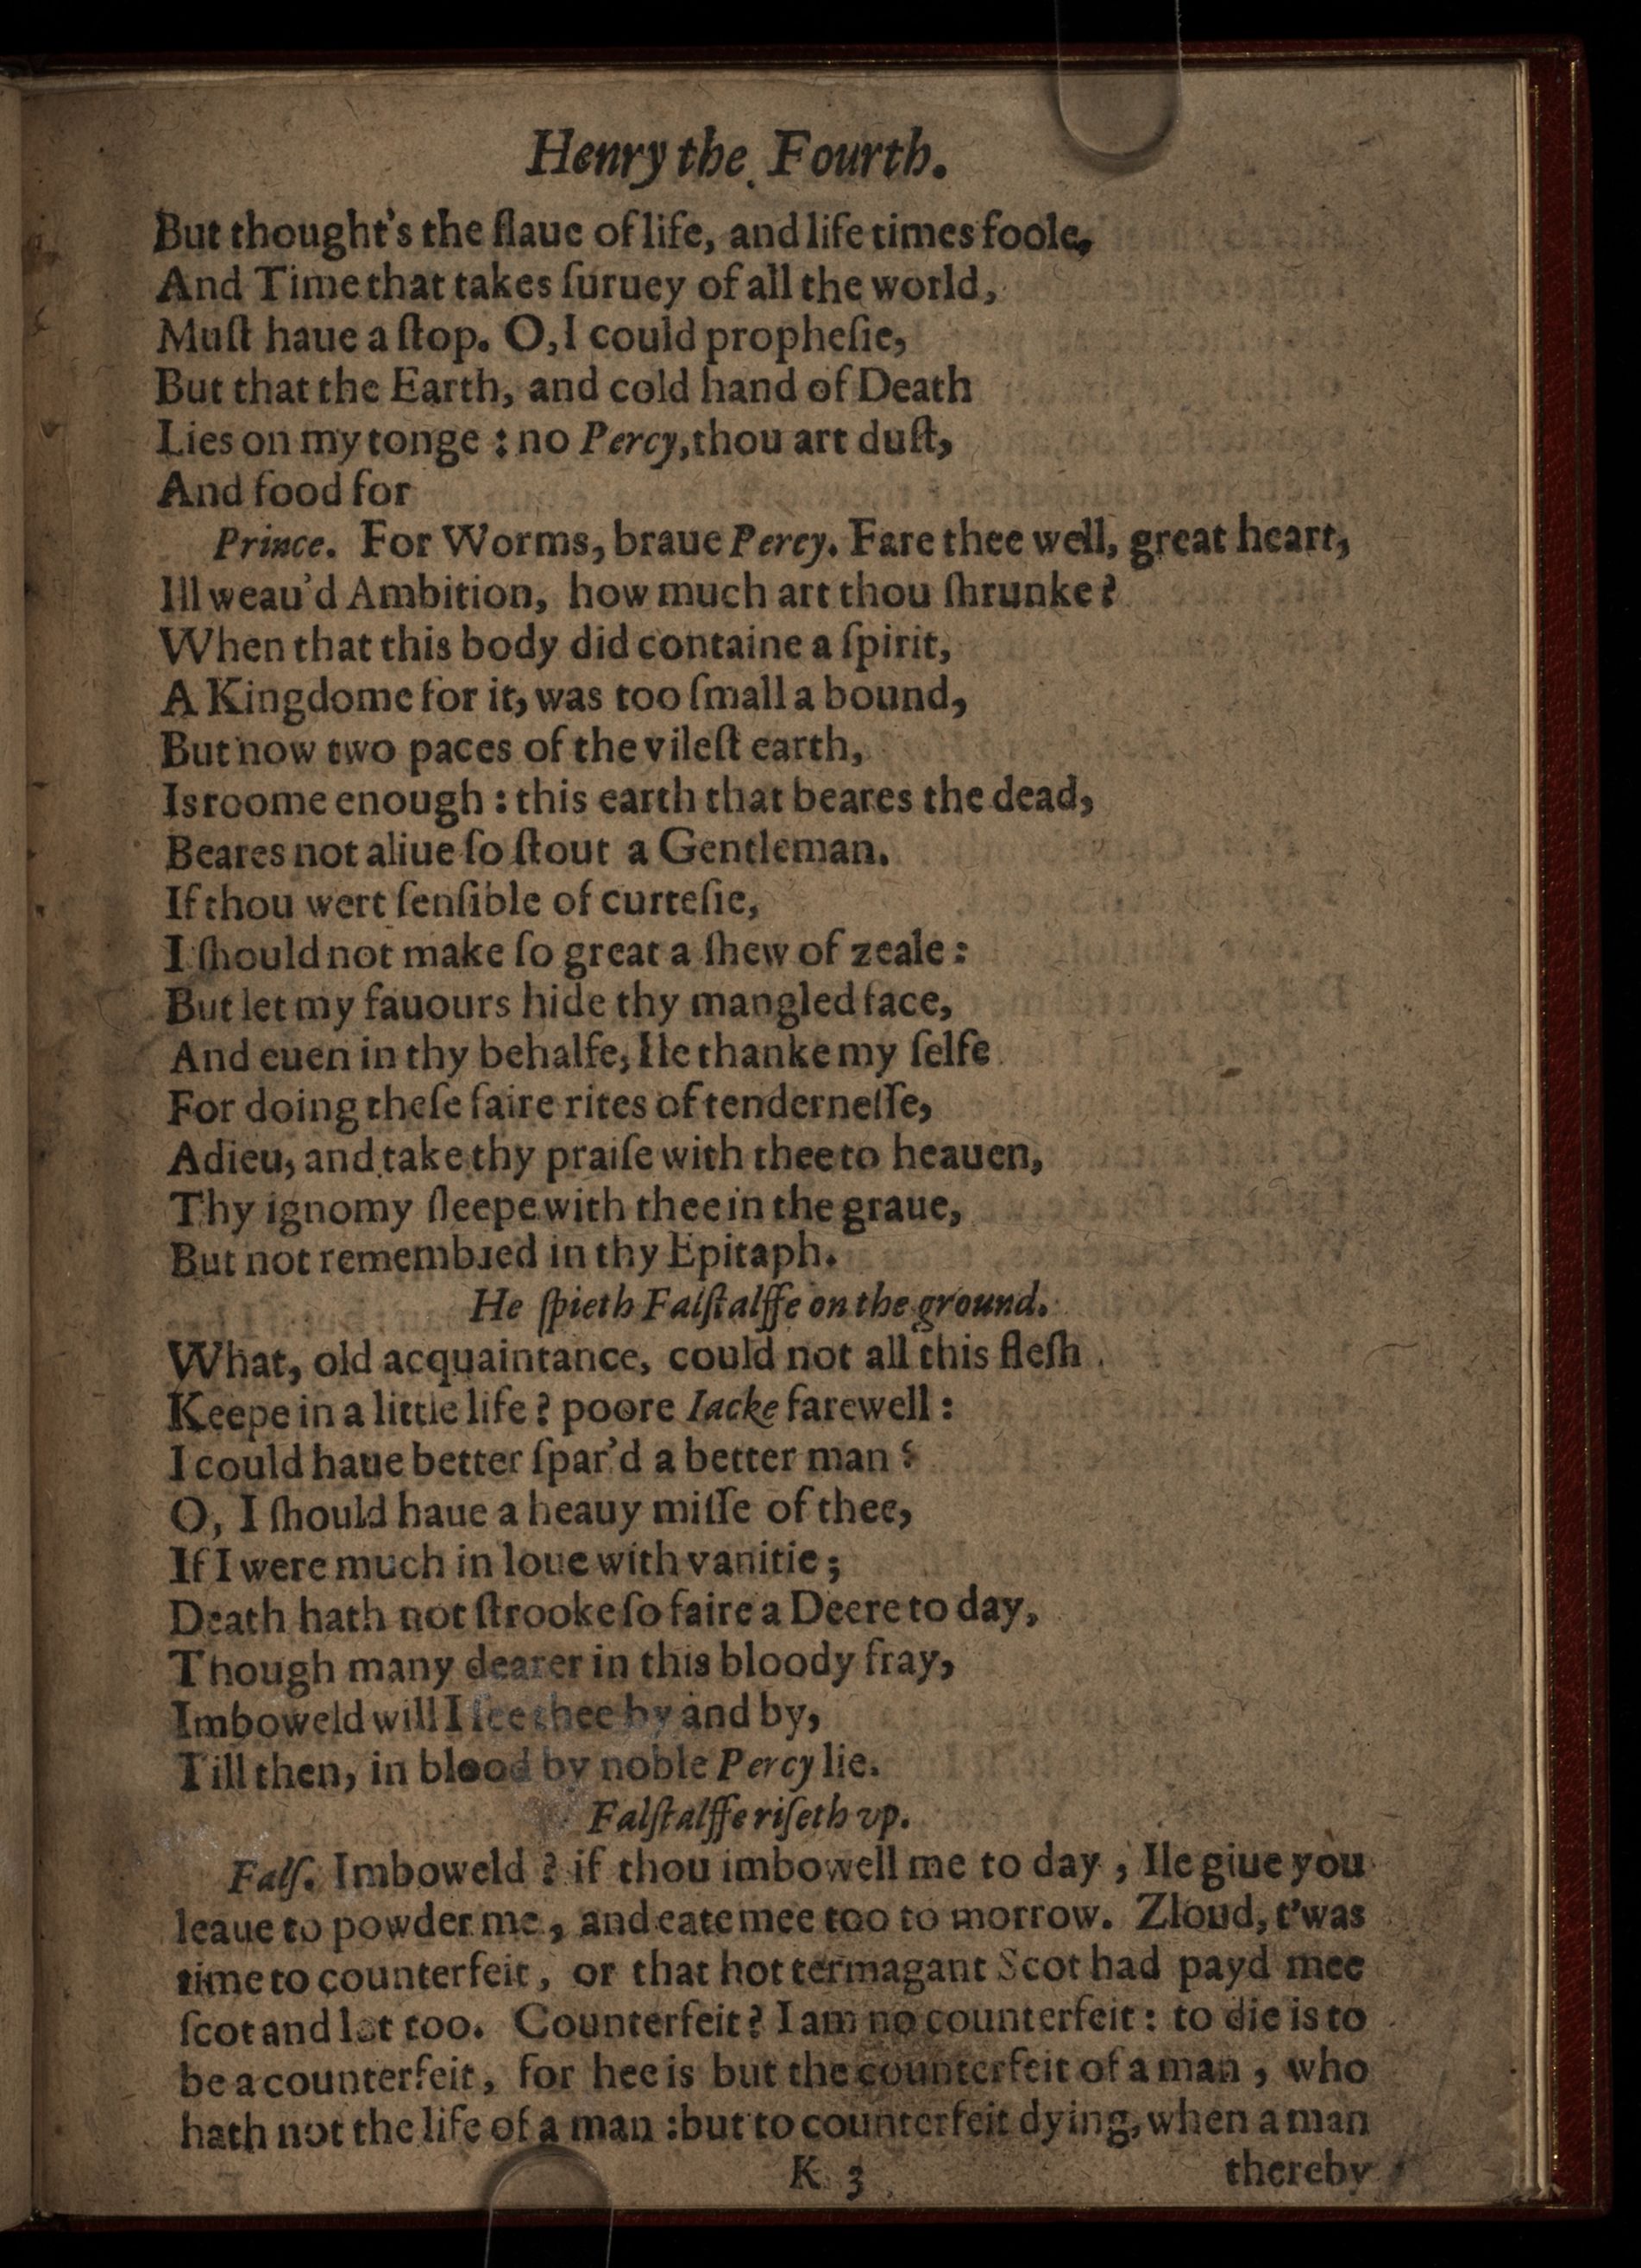 Henry the Fourth.
But thought's the ſlaue of life, and life times foole,
And Time that takes ſuruey of all the world,
Muſt haue a ſtop. O, I could propheſie,
But that the Earth, and cold hand of Death
Lies on my tonge : no Percy, thou art duſt,
And food for
Prince. For Worms, braue Percy. Fare thee well, great heart,
Ill weau'd Ambition, how much art thou ſhrunke?
When that this body did containe a ſpirit,
A Kingdome for it, was too ſmall a bound,
But now two paces of the vileſt earth,
Is roome enough : this earth that beares the dead,
Beares not aliue ſo ſtout a Gentleman.
If thou wert ſenſible of curteſie,
I ſhould not make ſo great a ſhew of zeale :
But let my fauours hide thy mangled face,
And euen in thy behalfe, Ile thanke my ſelfe
For doing theſe faire rites of tenderneſſe,
Adieu, and take thy praiſe with thee to heauen,
Thy ignomy ſleepe with thee in the graue,
But not remembred in thy Epitaph.
He ſpieth Falſtalffe on the ground.
What, old acquaintance, could not all this fleſh
Keepe in a little life ? poore Iacke farewell :
I could haue better ſpar'd a better man :
O, I ſhould haue a heauy miſſe of thee,
If I were much in loue with vanitie ;
Death hath not ſtrooke ſo faire a Deere to day,
Though many dearer in this bloody fray,
Imboweld will I ſee thee by and by,
Till then, in blood by noble Percy lie.
Falſtalffe riſeth vp.
Falſ. Imboweld ? if thou imbowell me to day , Ile giue you
leaue to powder me , and eate mee too to morrow. Zloud, t'was
time to counterfeit, or that hot termagant Scot had payd mee
ſcot and lot too. Counterfeit? I am no counterfeit : to die is to
be a counterfeit, for hee is but the counterfeit of a man , who
hath not the life of a man :but to counterfeit dying, when a man
K 3
thereby